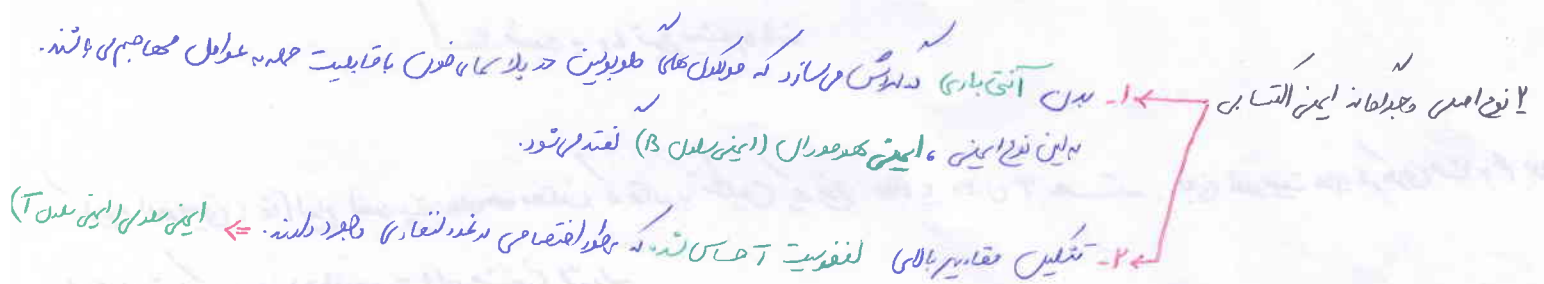 ۲ نوع اصلی و جداگانه ایمنی اکتسابی
۱- بدن آنتی بادی در گردش می‌سازد که مولکول های گلوبولین در پلاسمای خون با قابلیت حمله به عوامل مهاجم می باشند.
به این نوع ایمنی ، ایمنی هومورال (ایمنی سلول B) گفته می‌شود.
۲- تشکیل مقادیر بالای لنفوسیت T حساس شده که بطور اختصاصی در غدد لنفاوی وجود دارند. ⇐ ایمنی سلولی (ایمنی سلول T)